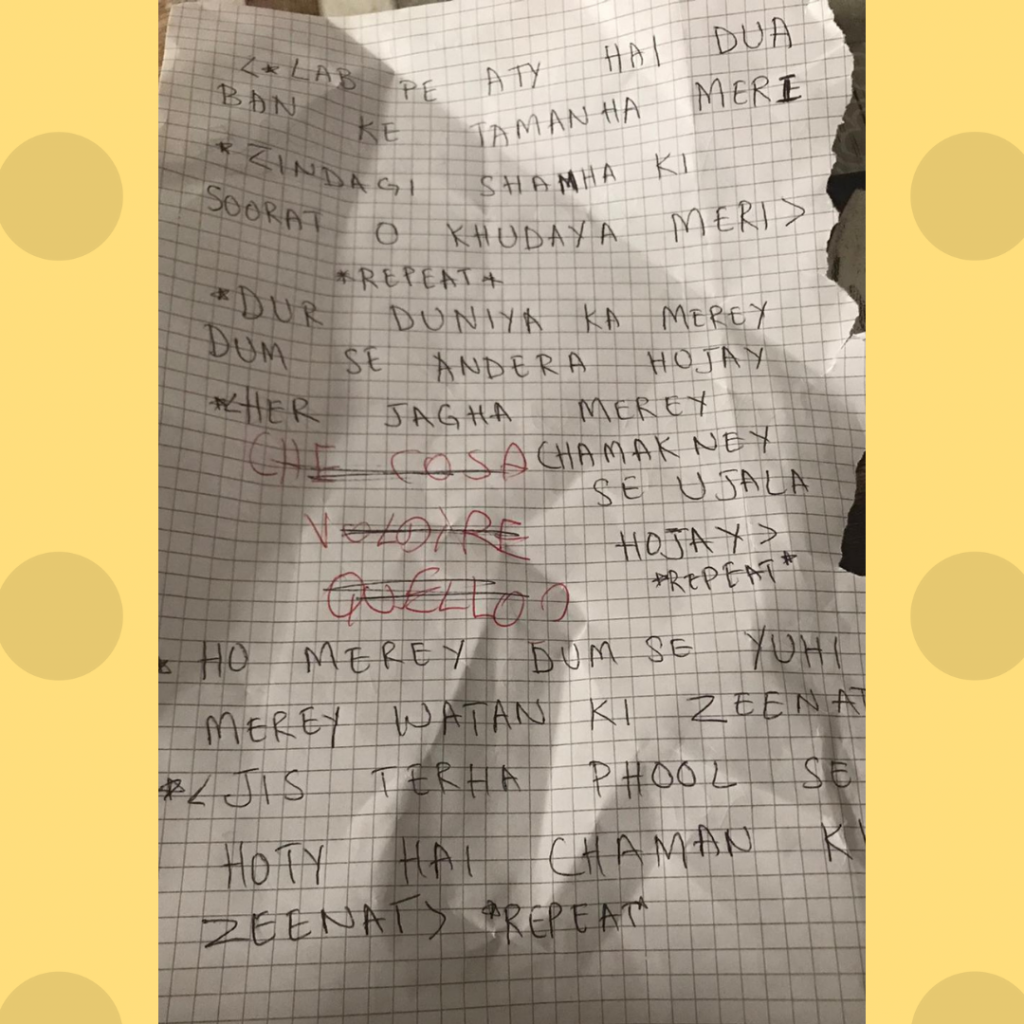 <*LAB PE ATY HAI DUA
BAN KE TAMANHA MERI
*ZINDAGI SHAMHA KI
SOORAT O KHUDAYA MERI>
*REPEAT*
*DUR DUNIYA KA MEREY
DUM SE ANDERA HOJAY
*<HER JAGHA MEREY
CHE COSA CHAMAKNEY
SE UJALA
VOLOIRE
HOJAY>
*REPEAT*
QUELLO
* HO MEREY DUM SE YUHI
MEREY WATAN KI ZEENAT
*<JIS TERHA PHOOL SE
HOTY HAI CHAMAN KI
ZEENAT> *REPEAT*